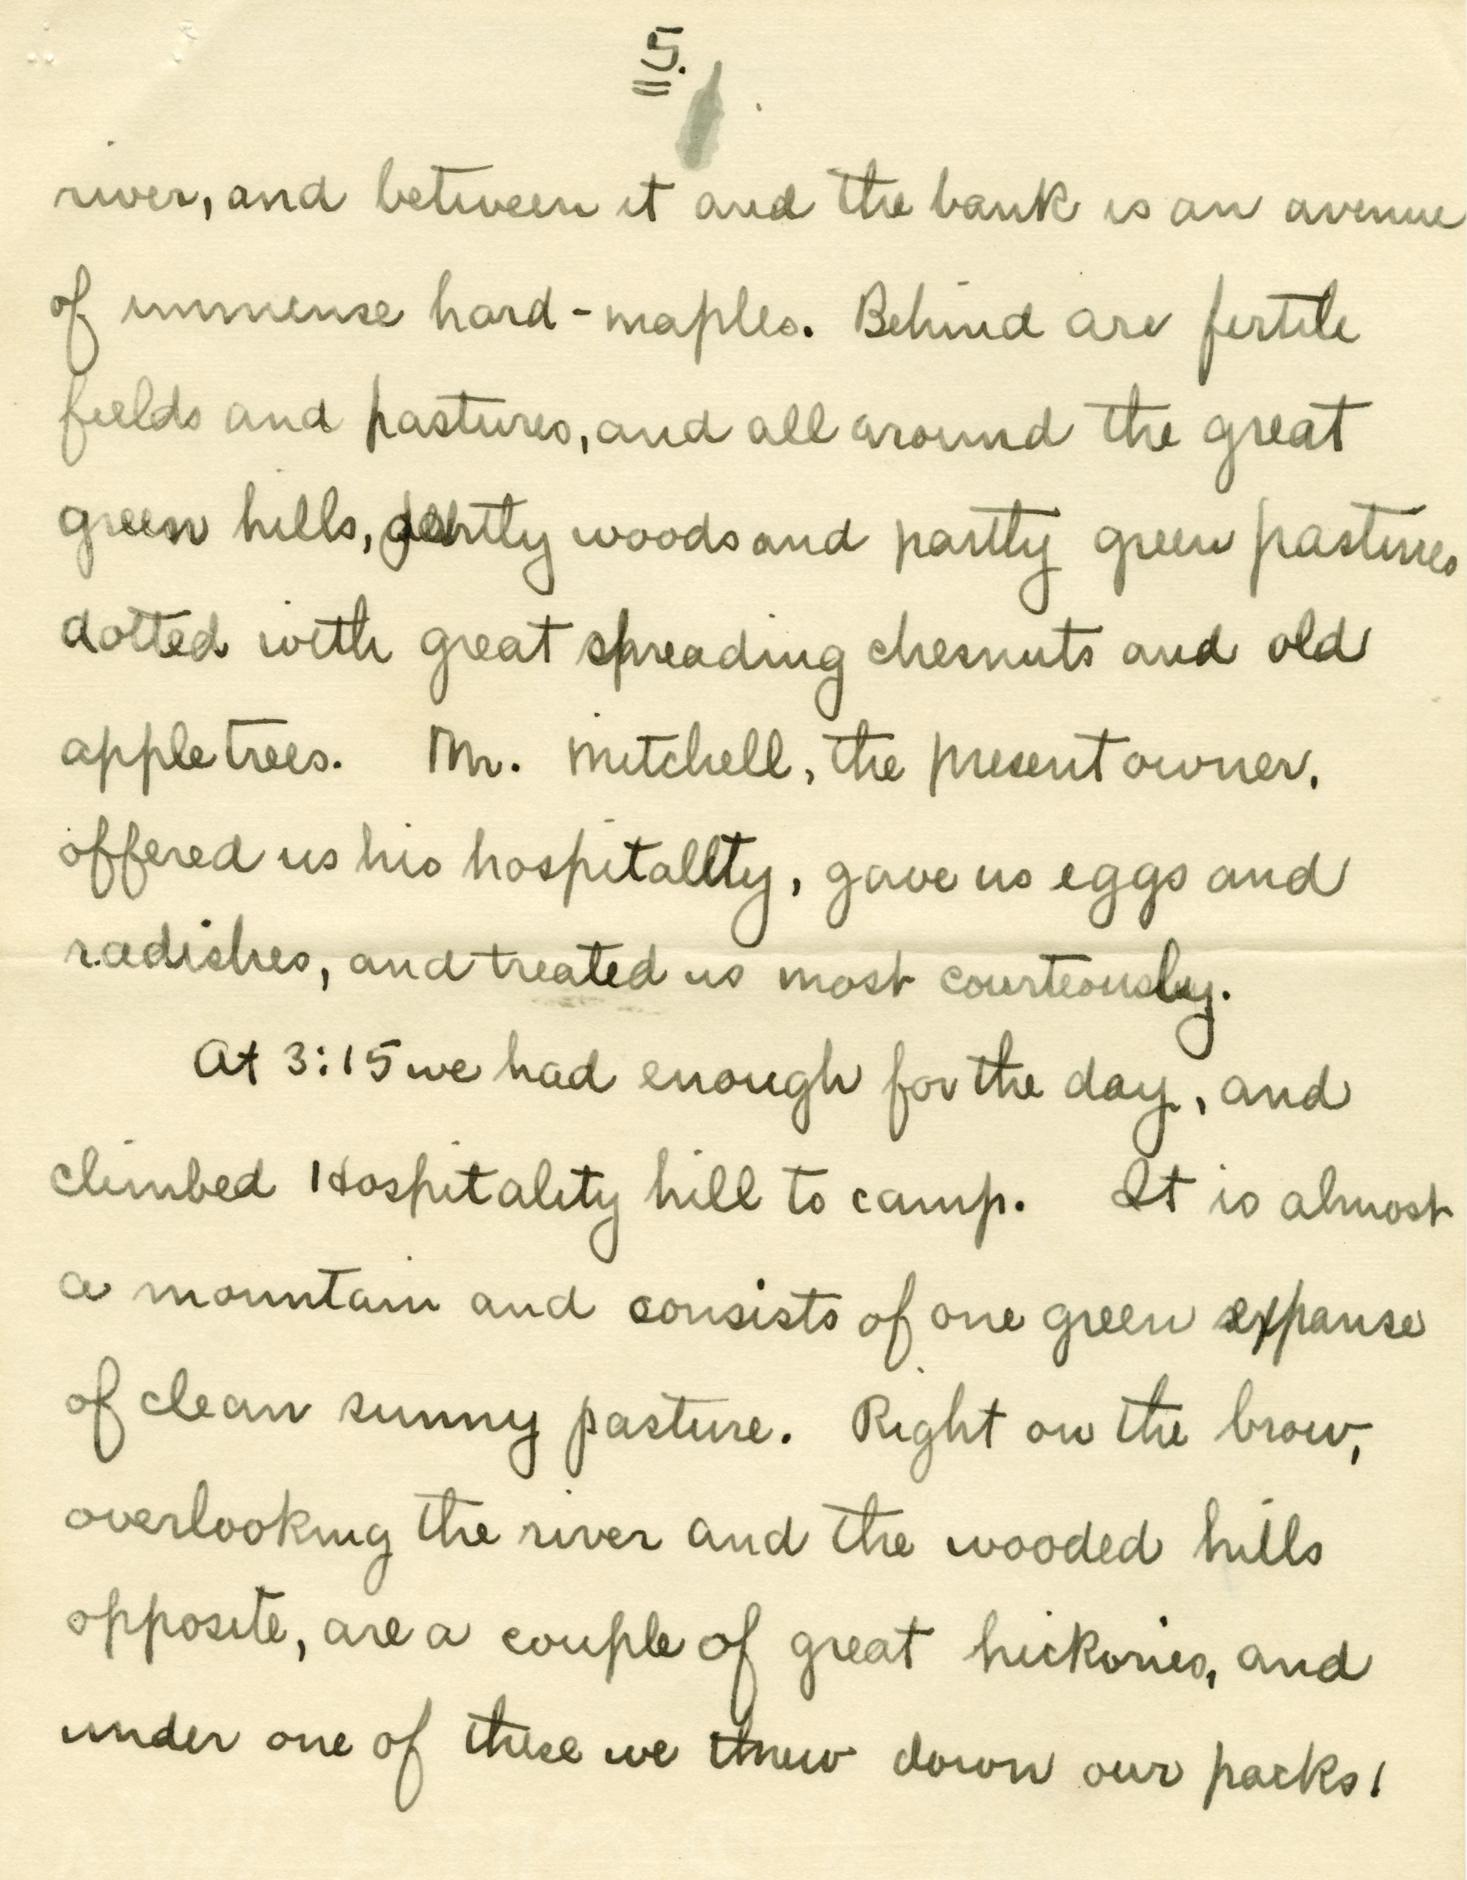 5.
river, and between it and the bank is an avenue
of immense hard-maples. Behind are fertile
fields and pastures, and all around the great
green hills, partly woods and partly green pastures
dotted with great spreading chesnuts and old
apple trees. Mr. Mitchell, the present owner,
offered us his hospitallty, gave us eggs and
radishes, and treated us most courteously.
At 3:15 we had enough for the day, and
climbed Hospitality hill to camp. It is almost
a mountain and consists of one green expanse
of clean sunny pasture. Right on the brow,
overlooking the river and the wooded hills
opposite, are a couple of great hickories, and
under one of these we threw down our packs!